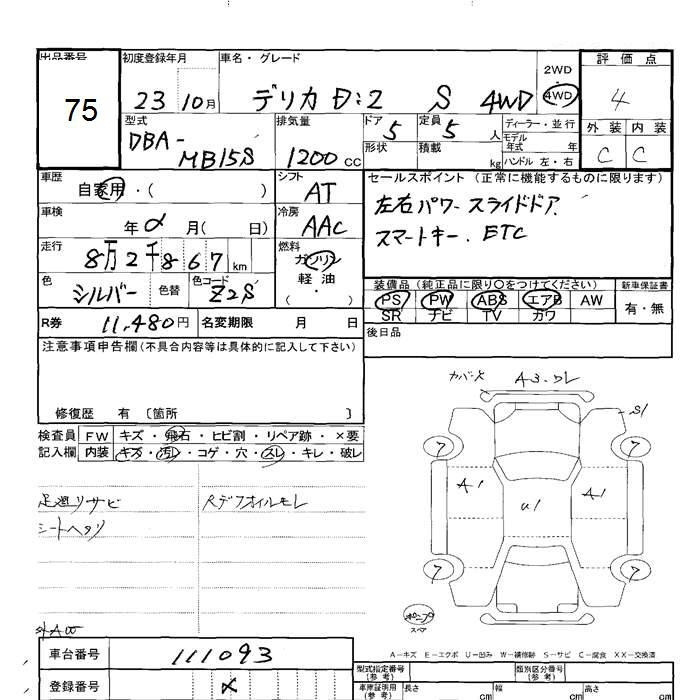 出品番号 初度登録年月 車名・グレード 2WD・4WD 評価点
75 23 10月 デリカ D:2 S 4WD 4
型式 DBA- MB15S 排気量 1200 cc ドア 5 定員 5 人 ディーラー・並行 外装 内装
形状 積載 kg モデル年式 年 C C
ハンドル 左・右
車歴 自家用・( ) シフト AT セールスポイント (正常に機能するものに限ります)
車検 年 月( 日) 冷房 AAC 左右パワースライドドア
走行 8万2千867km 燃料 ガソリン スマートキー. ETC
色 シルバー 色替 色コード Z2S 軽油・( )
装備品 (純正品に限り〇をつけてください) 新車保証書
PS PW ABS エアB AW 有・無
SR ナビ TV カワ
R券 11,480円 名変期限 月 日 後日品
注意事項申告欄(不具合内容等は具体的に記入して下さい)
修復歴 有 〔箇所 〕
検査員 FW キズ・飛石・ヒビ割・リペア跡・×要
記入欄 内装 キズ・汚レ・コゲ・穴・スレ・キレ・破レ
足廻リサビ Rデフオイルモレ
シートヘタリ
カバーX A3.
S1
7 7
A1 U1 A1
7 7
スペア
A-キズ E-エクボ U-凹み W-補修跡 S-サビ C-腐食 XX-交換済
車台番号 111093
登録番号 型式指定番号(参考) 類別区分番号(参考)
車庫証明用(参考) 長さ cm 幅 cm 高さ cm